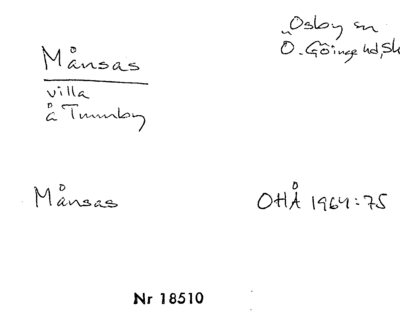 Osby sn
Ö. Göinge hd, Sk
Månsas
villa
å Tmmby
Månsas
OHÅ 1964:75
Nr 18510